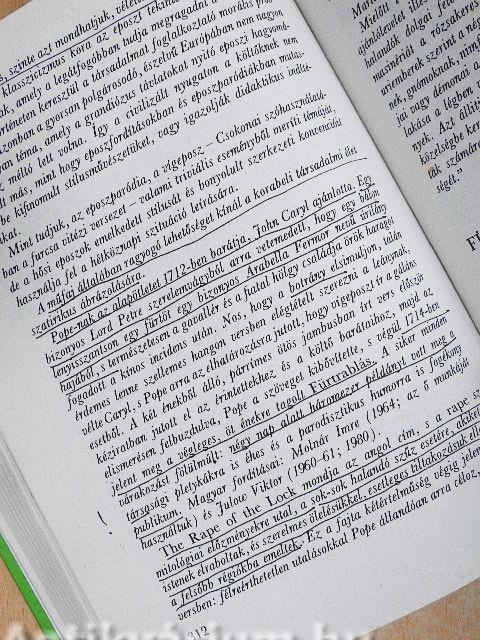 s, szinte azt mondhatjuk,
klasszicizmus kora az eposzt tekint
nak, amely a legátfogóbban tudja megragadni a
történeten keresztül a társadalmat foglalkoztató morális prob-
azonban a gyorsan polgárosodó, észelvű Európában nem nagyon
yan téma, amely a grandiózus távlatokat nyitó eposzi hagyomá-
z méltó lett volna. Így a civilizált nyugaton a költőknek nem
lt más, mint hogy eposzfordításokban és eposzparódiákban mutas-
be kifinomult stílusművészetüket, vagy igazolják didaktikus indít-
ikat.
Mint tudjuk, az eposzparódia, a vígeposz – Csokonai szóhasználatá-
ban a furcsa vitézi versezet – valami triviális eseményből meríti témáját,
de a hősi eposzok emelkedett stílusát és bonyolult szerkezeti konvencióit
használja fel a hétköznapi szituáció leírására.
A műfaj általában ragyogó lehetőséget kínál a korabeli társadalmi élet
szatirikus ábrázolására.
Pope-nak az alapötletet 1712-ben barátja, John Caryl ajánlotta. Egy
bizonyos Lord Petre szerelemvágyból arra vetemedett, hogy egy bálon
lenyisszantson egy fürtöt egy bizonyos Arabella Fermor nevű úrilány
hajából, s természetesen a gavallér és a fiatal hölgy családja örök haragot
fogadott a kínos incidens után. Nos, hogy a botrány elsimuljon, talán
érdemes lenne szellemes hangon versben elégtételt szerezni a leánynak,
vélte Caryl, s Pope arra az elhatározásra jutott, hogy vígeposzt ír a gáláns
esetből. A két énekből álló, párrímes ötös jambusban írt vers először
kéziratban jutott el az érintettekhez és a költő barátaihoz, majd az
elismerésen felbuzdulva, Pope a szöveget kibővítette, s végül 1714-ben
jelent meg a végleges, öt énekre tagolt Fürtrablás. A siker minden
várakozást fölülmúlt: négy nap alatt háromezer példányt vett meg a
társasági pletykákra is éhes és a parodisztikus humorra is fogékony
publikum. Magyar fordításai: Molnár Imre (1964; az ő munkáját
használtuk) és Julow Viktor (1960-61; 1980).
The Rape of the Lock mondja az angol cím, s a rape sz
mitológiai előzményekre utal, a sok-sok halandó szűz esetére, akiket
istenek elraboltak, és szerelmes ölelésükkel, esetleges tiltakozásuk elle
a felsőbb régiókba emeltek. Ez a fajta kétértelműség végig jelen
versben: félreérthetetlen utalásokkal Pope állandóan arra céloz,
312
Mielőtt
ajándokolel illet
halandók dolgai felv
masinériát a rózsakeres
úriemberek szerint a nég
nék, gnómoknak, nimfá
jai vagy démonai a
lakása a légben v
nyek. Azt állít
közelségbe ker
nak számára
ségel."